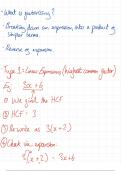 • What is factorising?
• Breaking down an expression into a product of
simpler terms.
• Reverse of expansion.
Type 1: Linear Expressions (highest common factor)
Eg. 3x + 6
① We find the HCF
② HCF : 3
③ Rewrite as 3(x + 2)
④ Check via expansion:
3(x + 2) = 3x + 6